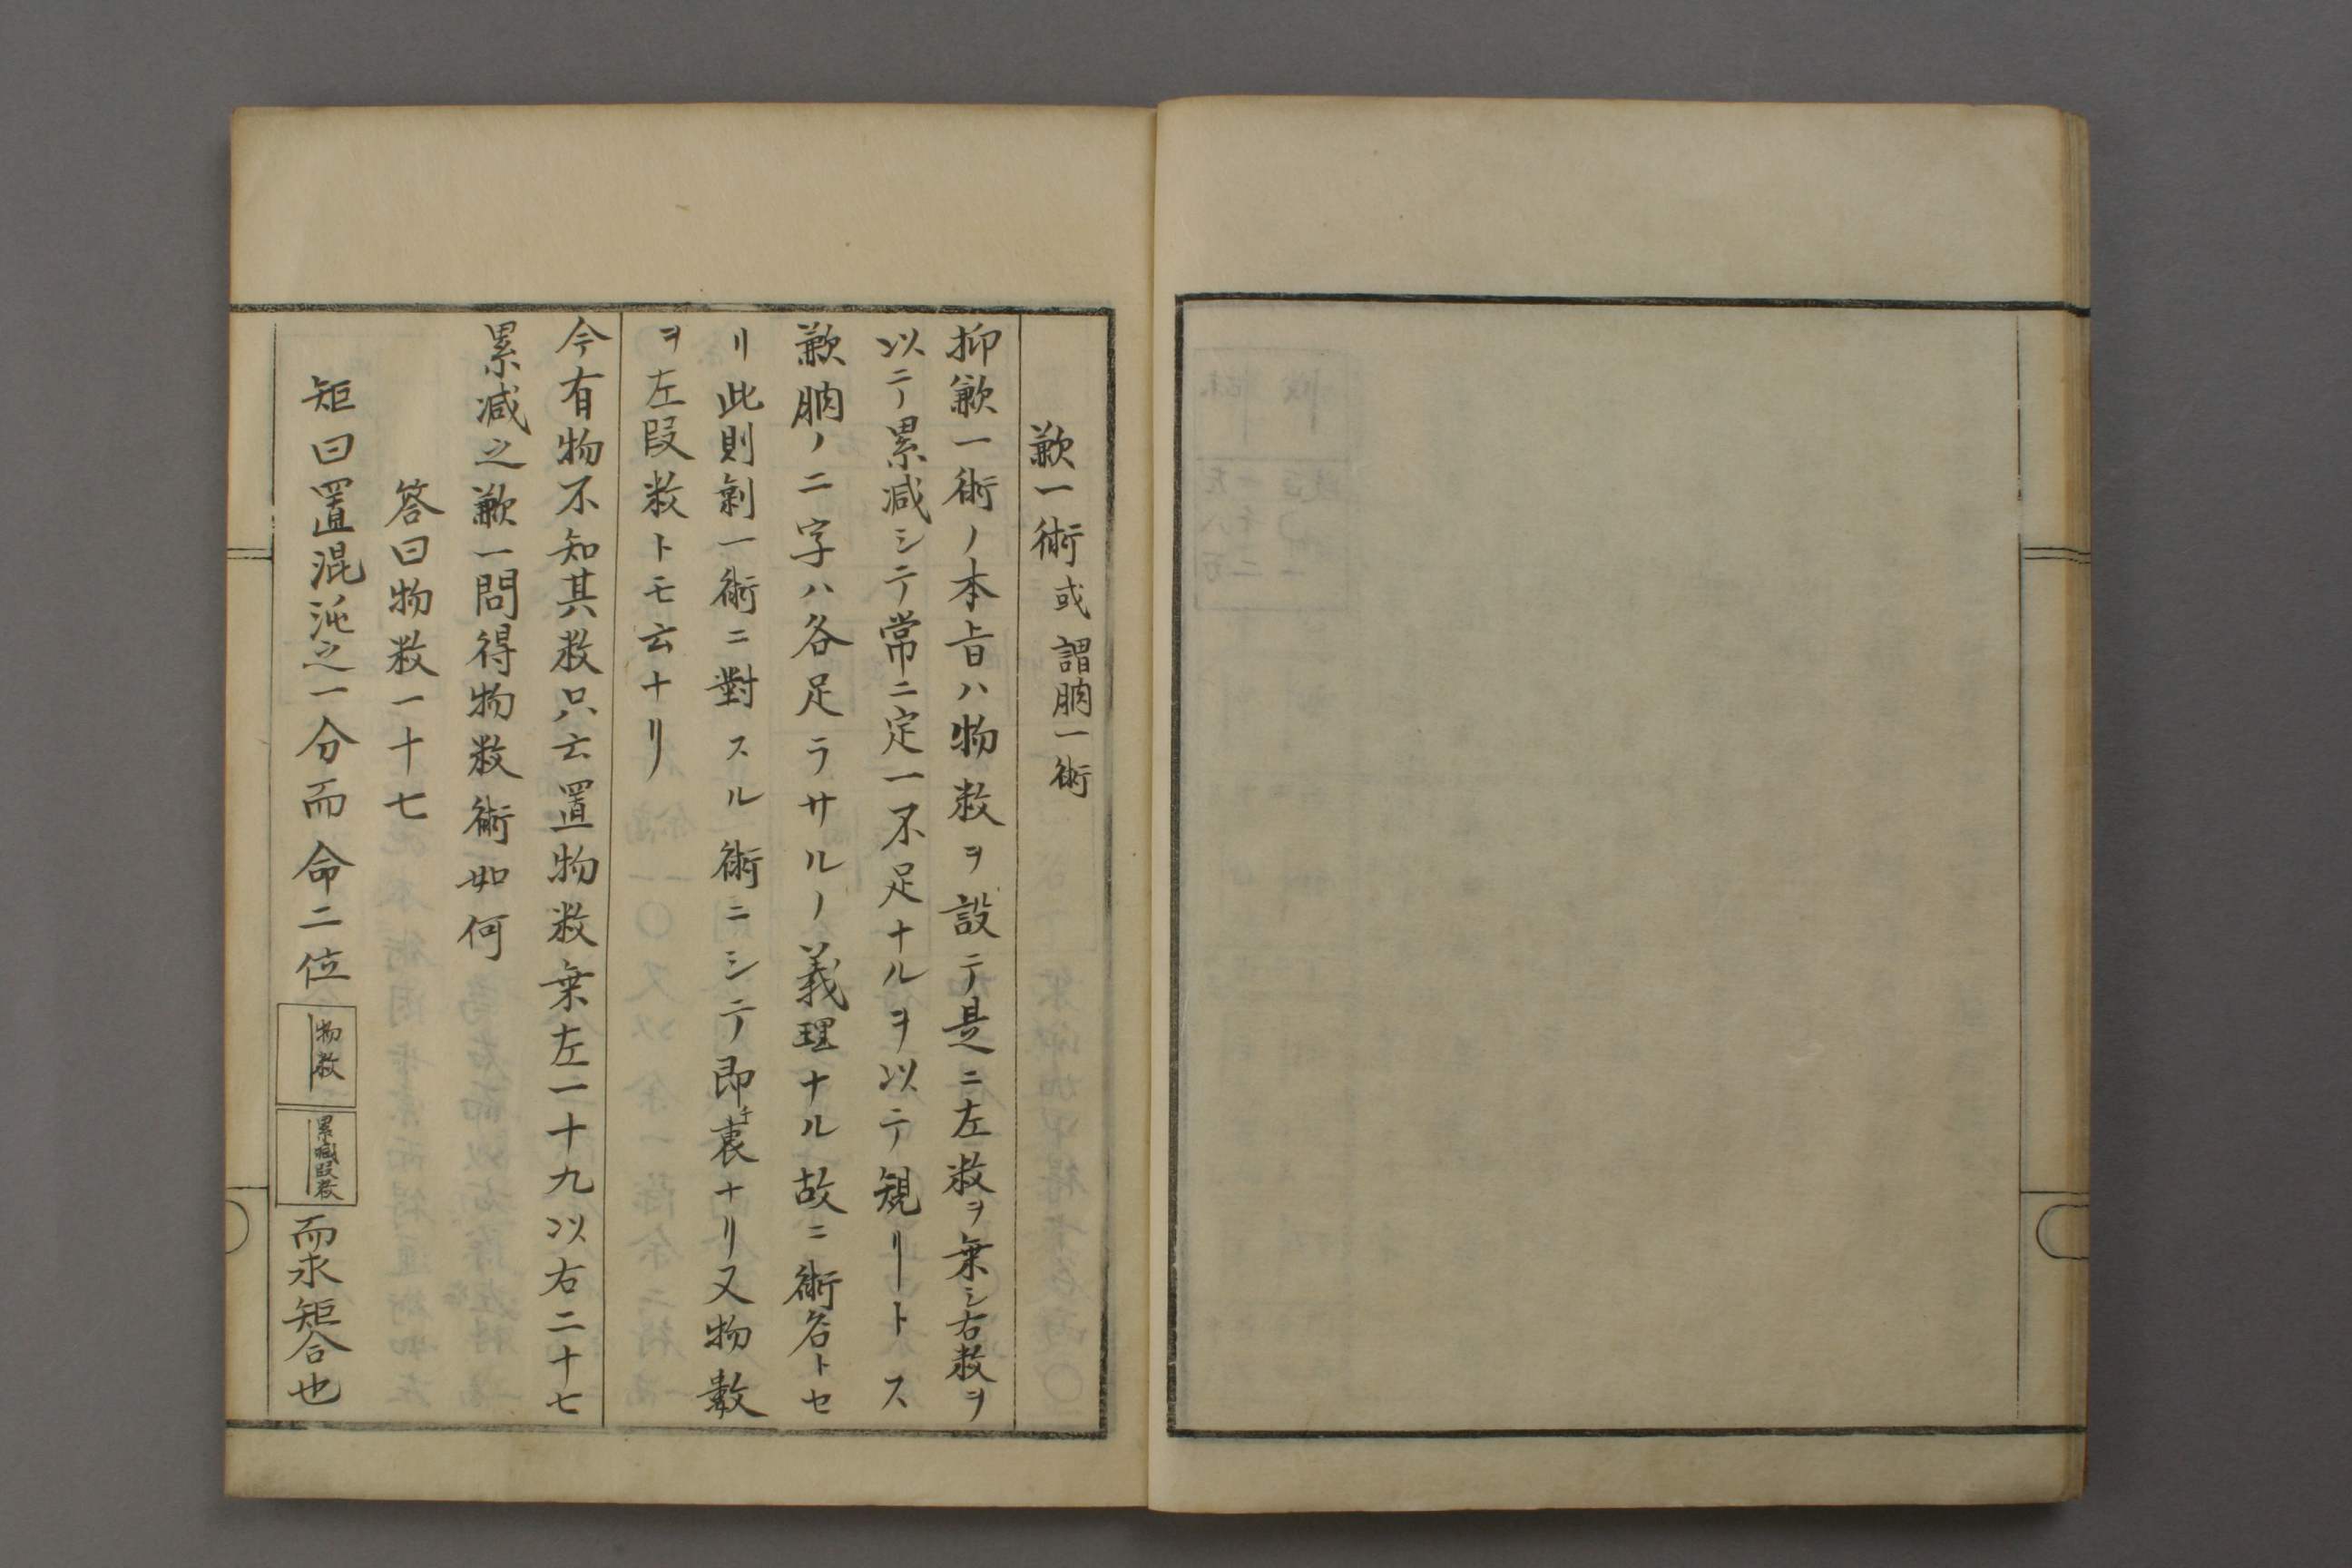 歉一術 或謂朒一術
抑歉一術ノ本旨ハ物数ヲ設テ是ニ左数ヲ乗シ右数ヲ
以テ累減シテ常ニ定一不足ナルヲ以テ規リートス
歉朒ノ二字ハ各足ラサルノ義理ナル故ニ術名トセ
リ此則剰一術ニ對スル術ニシテ即チ裏ナリ又物數
ヲ左段数トモ云ナリ
今有物不知其数只云置物数乗左一十九以右二十七
累減之歉一問得物数術如何
答曰物数一十七
矩曰置混沌之一分而命二位 物数 累減段数 而求矩合也